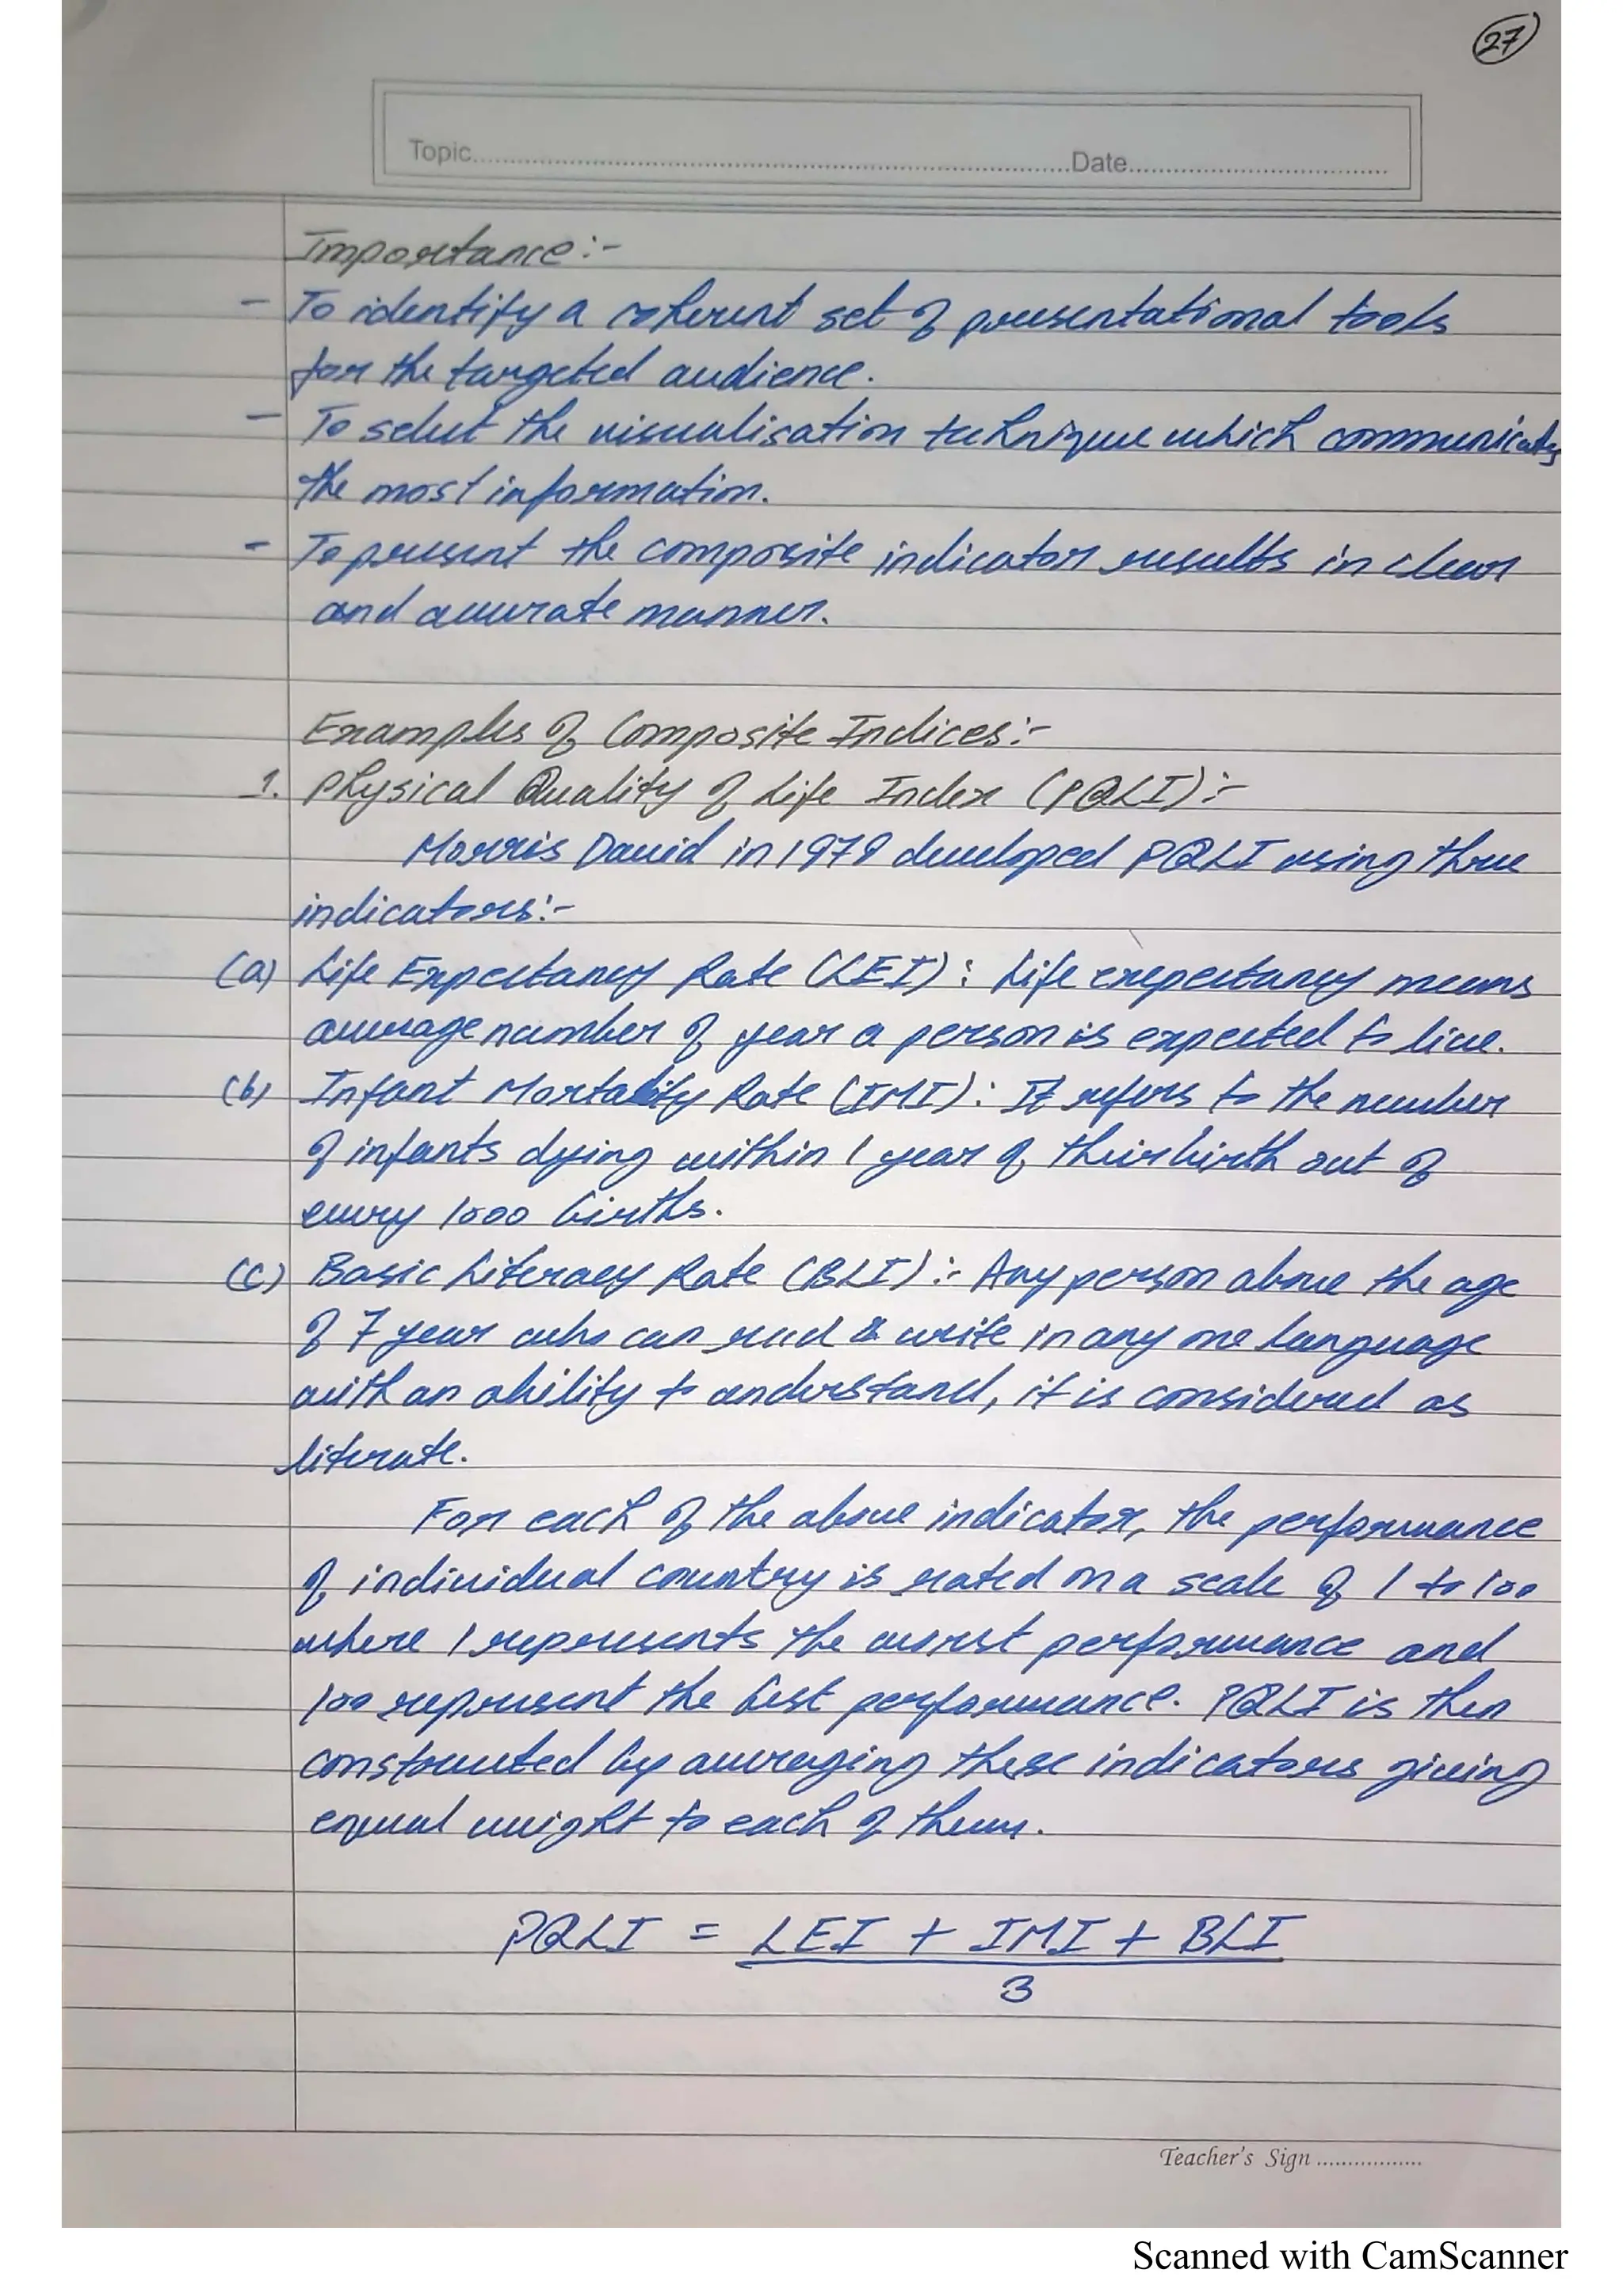 27
Topic..........Date..........
Importance:-
- To identify a coherent set of presentational tools
for the targeted audience.
- To select the visualisation technique which communicates
the most information.
- To present the composite indicator results in clear
and accurate manner.
Examples of Composite Indices:-
1. Physical Quality of Life Index (PQLI):-
Morris David in 1979 developed PQLI using three
indicators:-
(a) Life Expectancy Rate (LEI): Life expectancy means
average number of year a person is expected to live.
(b) Infant Mortality Rate (IMI): It refers to the number
of infants dying within 1 year of their birth out of
every 1000 births.
(c) Basic Literacy Rate (BLI):- Any person above the age
of 7 year who can read & write in any one language
with an ability to understand, it is considered as
literate.
For each of the above indicator, the performance
of individual country is rated on a scale of 1 to 100
where 1 represents the worst performance and
100 represent the best performance. PQLI is then
constructed by averaging these indicators giving
equal weight to each of them.
PQLI = LEI + IMI + BLI
3
Teacher's Sign..........
Scanned with CamScanner